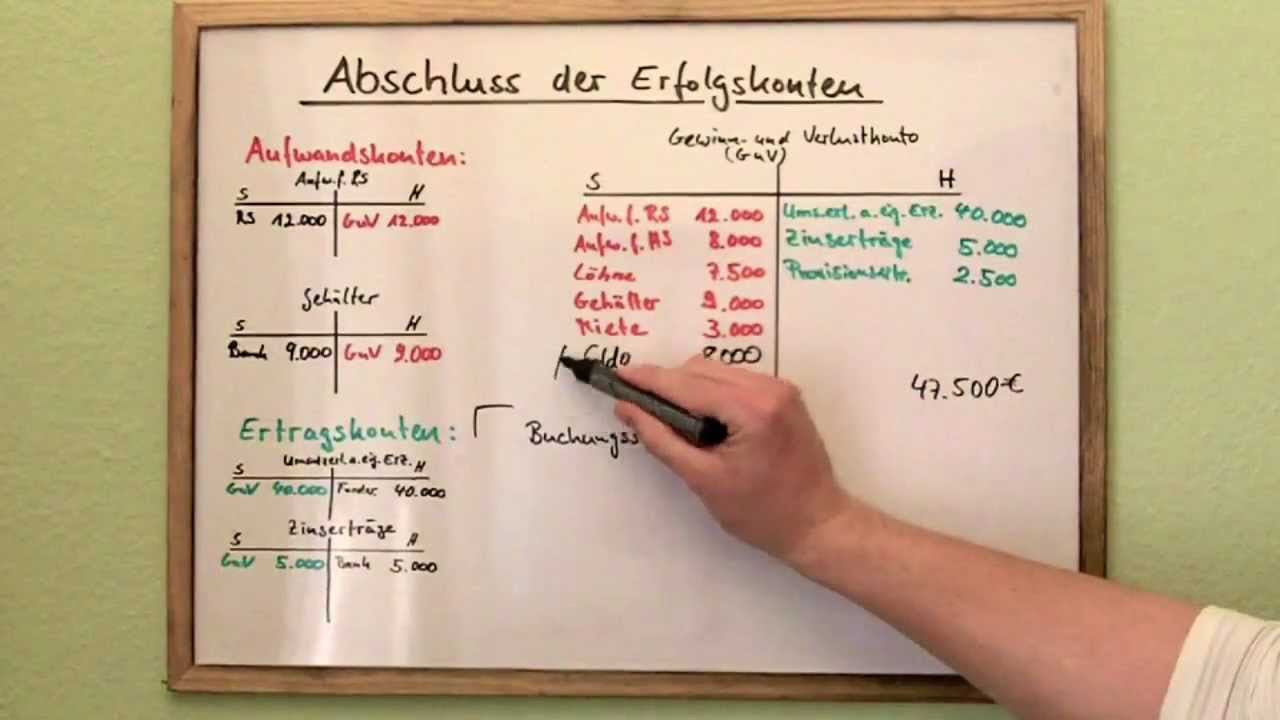 Abschluss der Erfolgskonten
Aufwandskonten:
Aufw. f. RS
S H
RS 12.000 GuV 12.000
Gehälter
S H
Bank 9.000 GuV 9.000
Ertragskonten:
Umsatzerl. a. eig. Erz.
S H
GuV 40.000 Forder. 40.000
Zinserträge
S H
GuV 5.000 Bank 5.000
Gewinn- und Verlustkonto
(GuV)
S H
Aufw. f. RS 12.000 Ums.erl. a. eig. Erz. 40.000
Aufw. f. HS 8.000 Zinserträge 5.000
Löhne 7.500 Provisionsertr. 2.500
Gehälter 9.000
Miete 3.000
8.000
47.500€
Buchungss